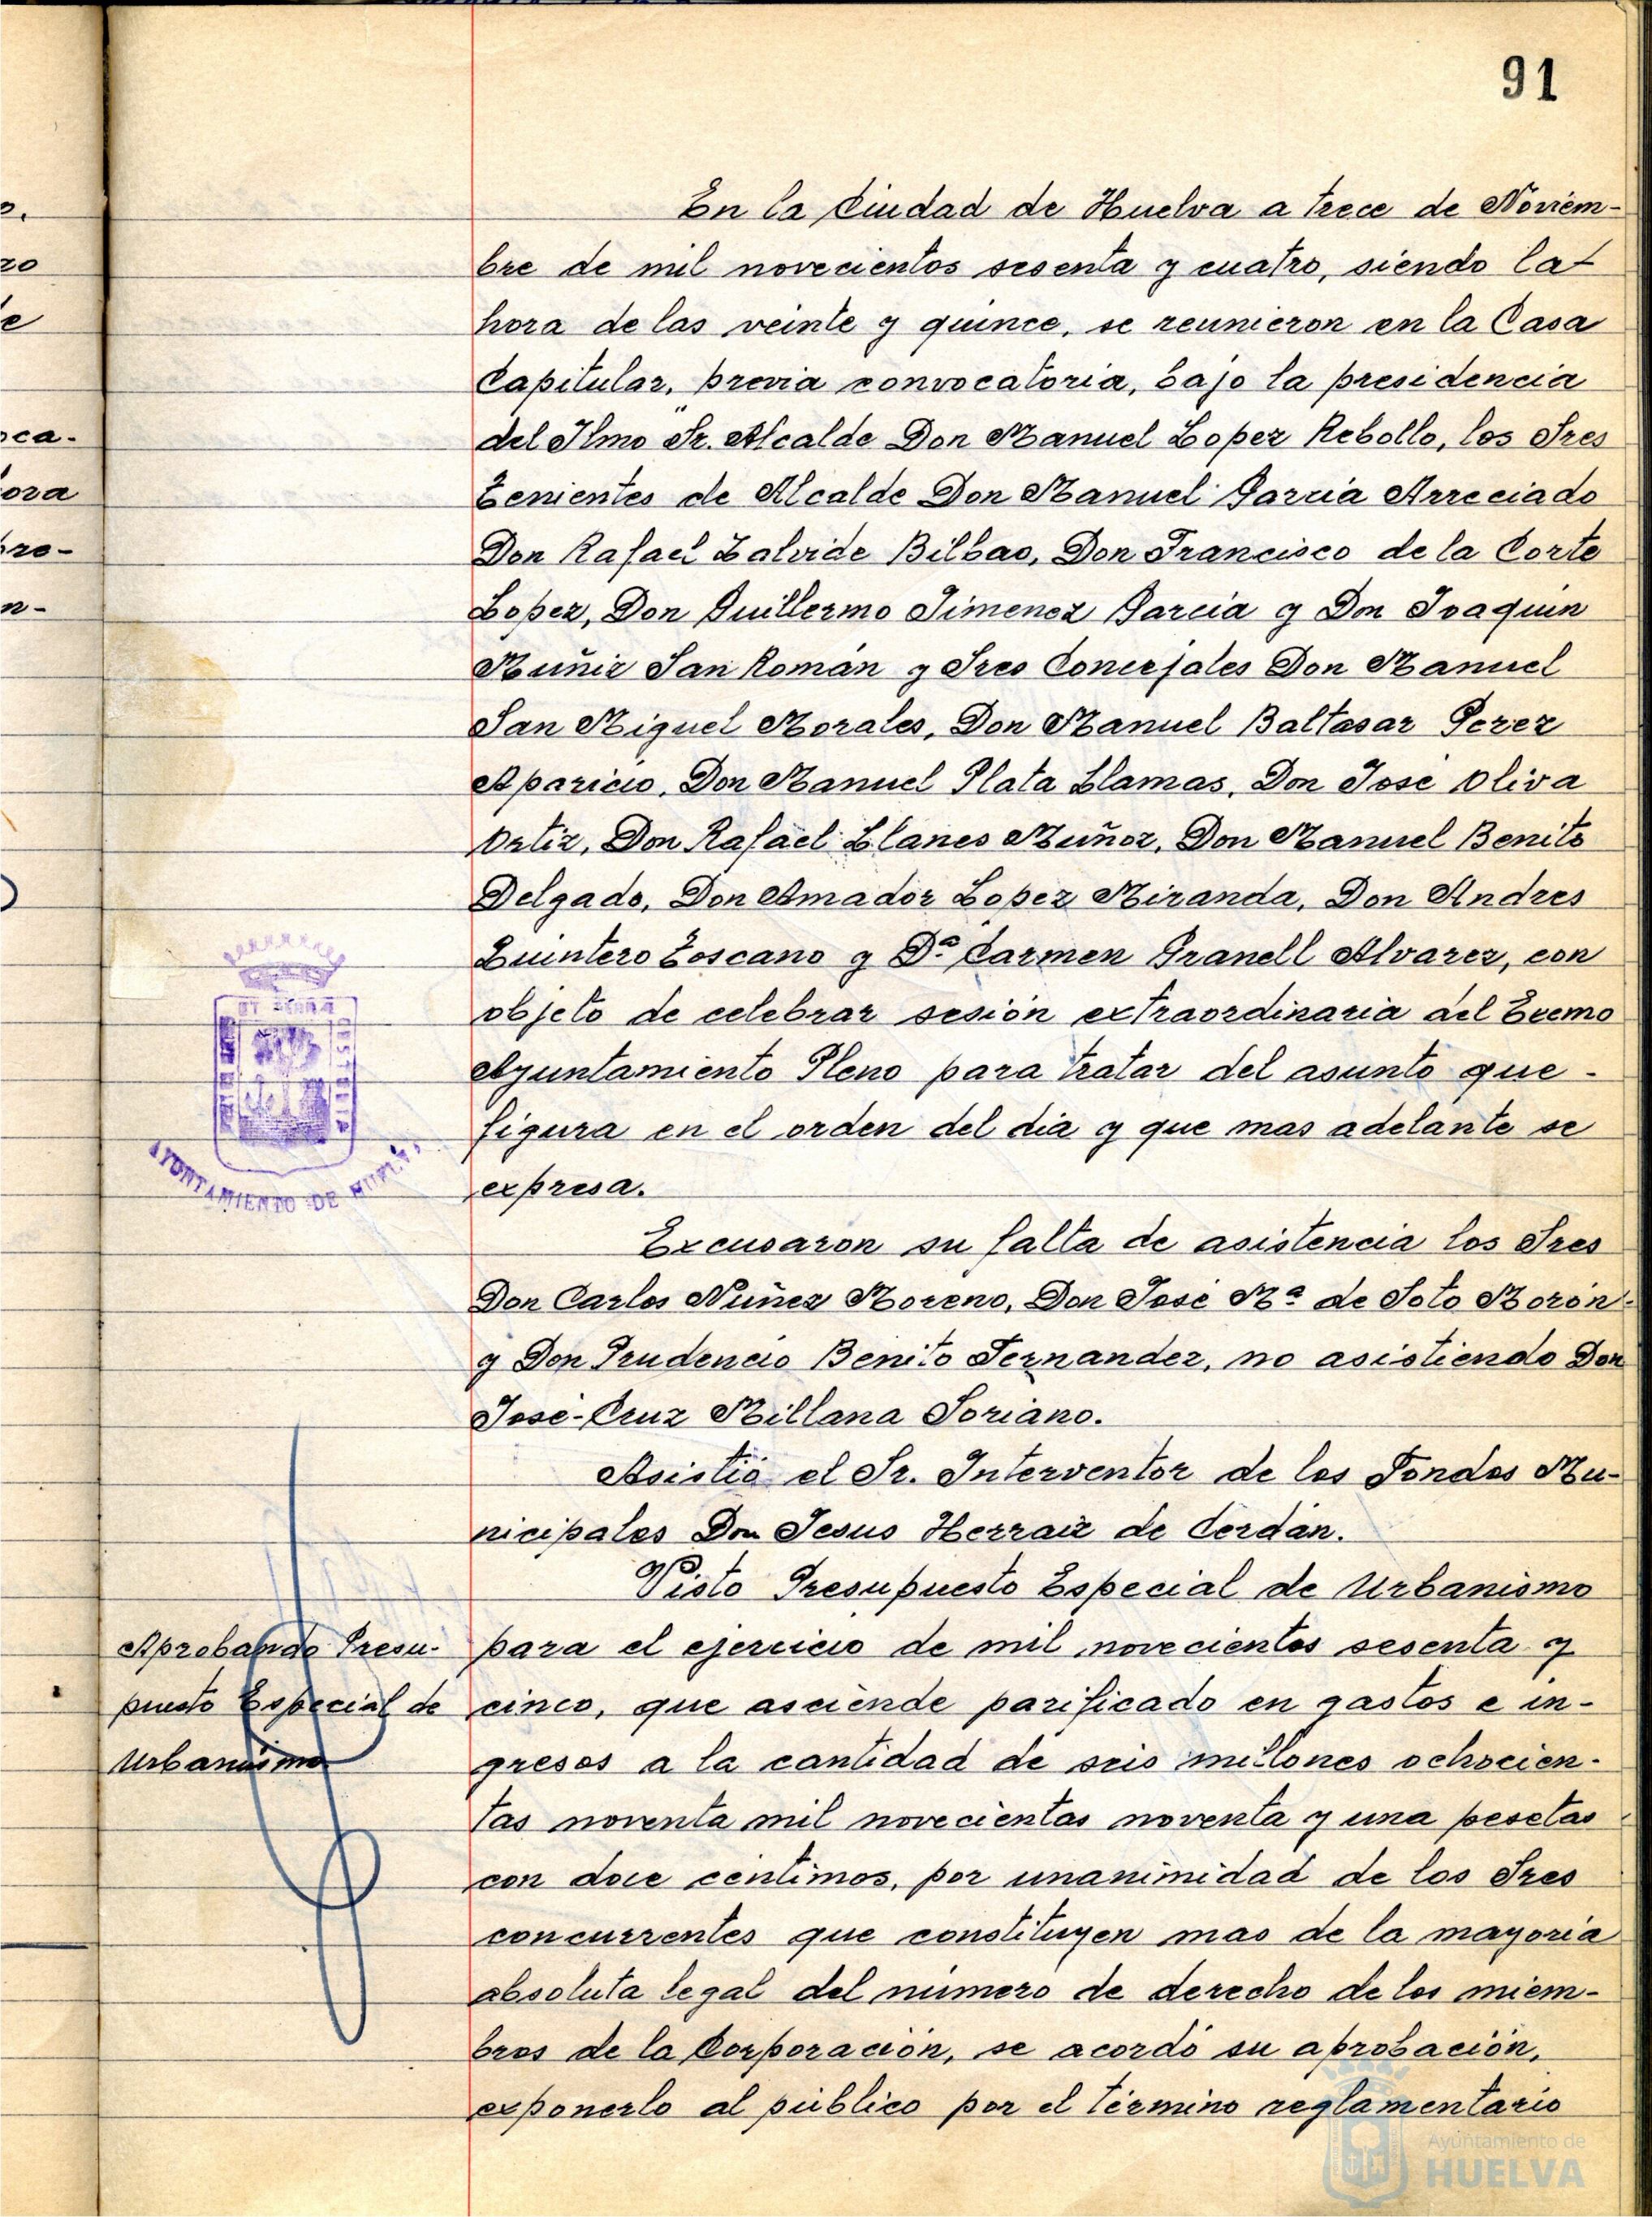 91
En la Ciudad de Huelva a trece de Noviem-
bre de mil novecientos sesenta y cuatro, siendo la
hora de las veinte y quince, se reunieron en la Casa
Capitular, previa convocatoria, bajo la presidencia
del Ilmo Sr. Alcalde Don Manuel Lopez Rebollo, los Sres
Tenientes de Alcalde Don Manuel Garcia Arreciado
Don Rafael Zalvide Bilbao, Don Francisco de la Corte
Lopez, Don Guillermo Jimenez Garcia y Don Joaquin
Muñiz San Román y Sres Concejales Don Manuel
San Miguel Morales, Don Manuel Baltasar Perez
Aparicio, Don Manuel Plata Llamas, Don José Oliva
Ortiz, Don Rafael Llanes Muñoz, Don Manuel Benito
Delgado, Don Amador Lopez Miranda, Don Andres
Quintero Toscano y Dª Carmen Granell Alvarez, con
objeto de celebrar sesión extraordinaria del Excmo
Ayuntamiento Pleno para tratar del asunto que -
figura en el orden del dia y que mas adelante se
expresa.
AYUNTAMIENTO DE HUELVA
Excusaron su falta de asistencia los Sres
Don Carlos Nuñez Moreno, Don José Mª de Soto Morón-
y Don Prudencio Benito Fernandez, no asistiendo Don
José-Cruz Millana Soriano.
Asistió el Sr. Interventor de los Fondos Mu-
nicipales Don Jesus Herraiz de Cerdán.
Visto Presupuesto Especial de Urbanismo
Aprobando Presu-
puesto Especial de
Urbanismo
para el ejercicio de mil novecientos sesenta y
cinco, que asciende parificado en gastos e in-
gresos a la cantidad de seis millones ochocien-
tas noventa mil novecientas noventa y una pesetas
con doce centimos, por unanimidad de los Sres
concurrentes que constituyen mas de la mayoria
absoluta legal del número de derecho de los miem-
bros de la Corporación, se acordó su aprobación,
exponerlo al público por el término reglamentario
Ayuntamiento de
HUELVA
ro
oca.
ora
pro-
n-